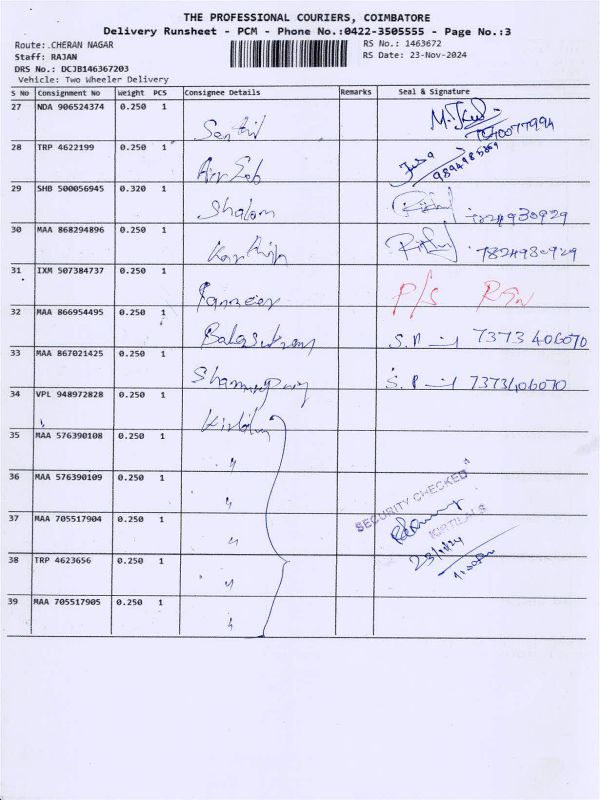 THE PROFESSIONAL COURIERS, COIMBATORE
Delivery Runsheet - PCM - Phone No.:0422-3505555 - Page No.:3
Route:.CHERAN NAGAR RS No.: 1463672
Staff: RAJAN RS Date: 23-Nov-2024
DRS No.: DCJB146367203
Vehicle: Two Wheeler Delivery
S No Consignment No Weight PCS Consignee Details Remarks Seal & Signature
27 NDA 906524374 0.250 1
28 TRP 4622199 0.250 1
29 SHB 500056945 0.320 1 Shalom 7824930929
30 MAA 868294896 0.250 1 Karthik 7824930929
31 IXM 507384737 0.250 1 P/S
32 MAA 866954495 0.250 1 7373 406070
33 MAA 867021425 0.250 1 7373406070
34 VPL 948972828 0.250 1
35 MAA 576390108 0.250 1 "
36 MAA 576390109 0.250 1 "
SECURITY CHECKED
37 MAA 705517904 0.250 1 "
KIRTILALS
38 TRP 4623656 0.250 1 "
39 MAA 705517905 0.250 1 "